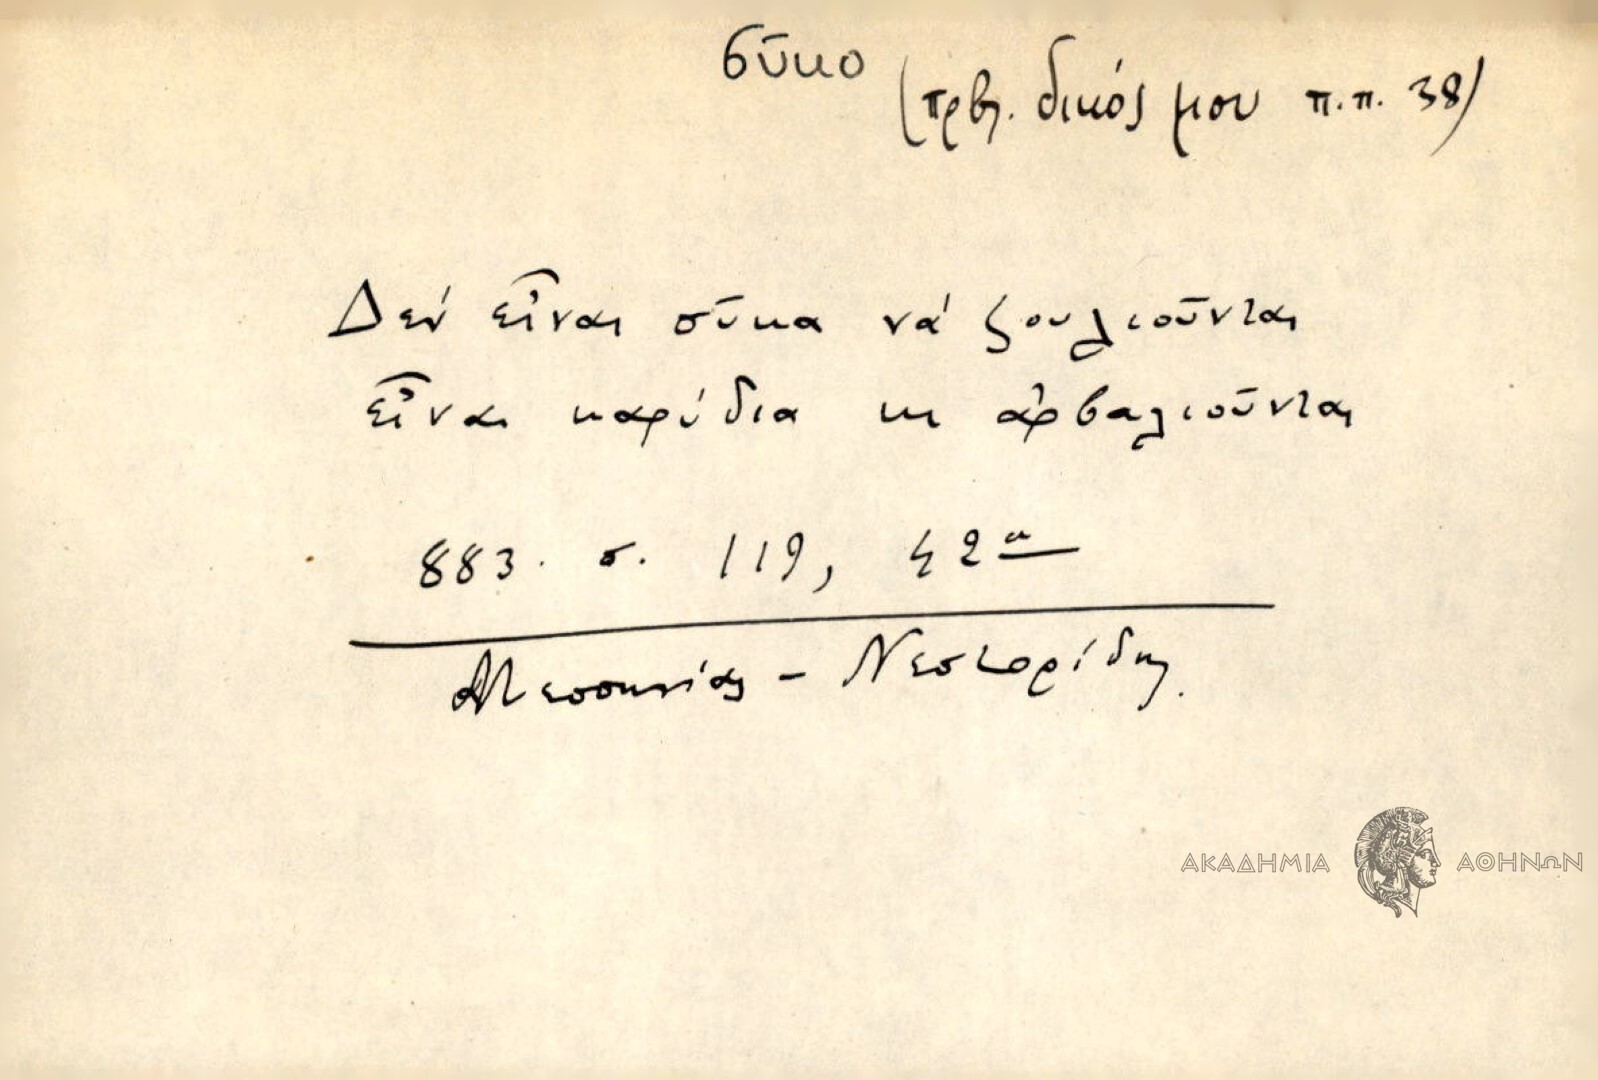 σῦκο (πρβλ. δικός μου π.π. 38)
Δέν εἶναι σῦκα νά ζουλιοῦνται
εἶναι καρύδια κι ἀρβαλιοῦνται
883. σ. 119, 42α
Μεσσηνίας - Νεστορίδης.
ΑΚΑΔΗΜΙΑ ΑΘΗΝΩΝ